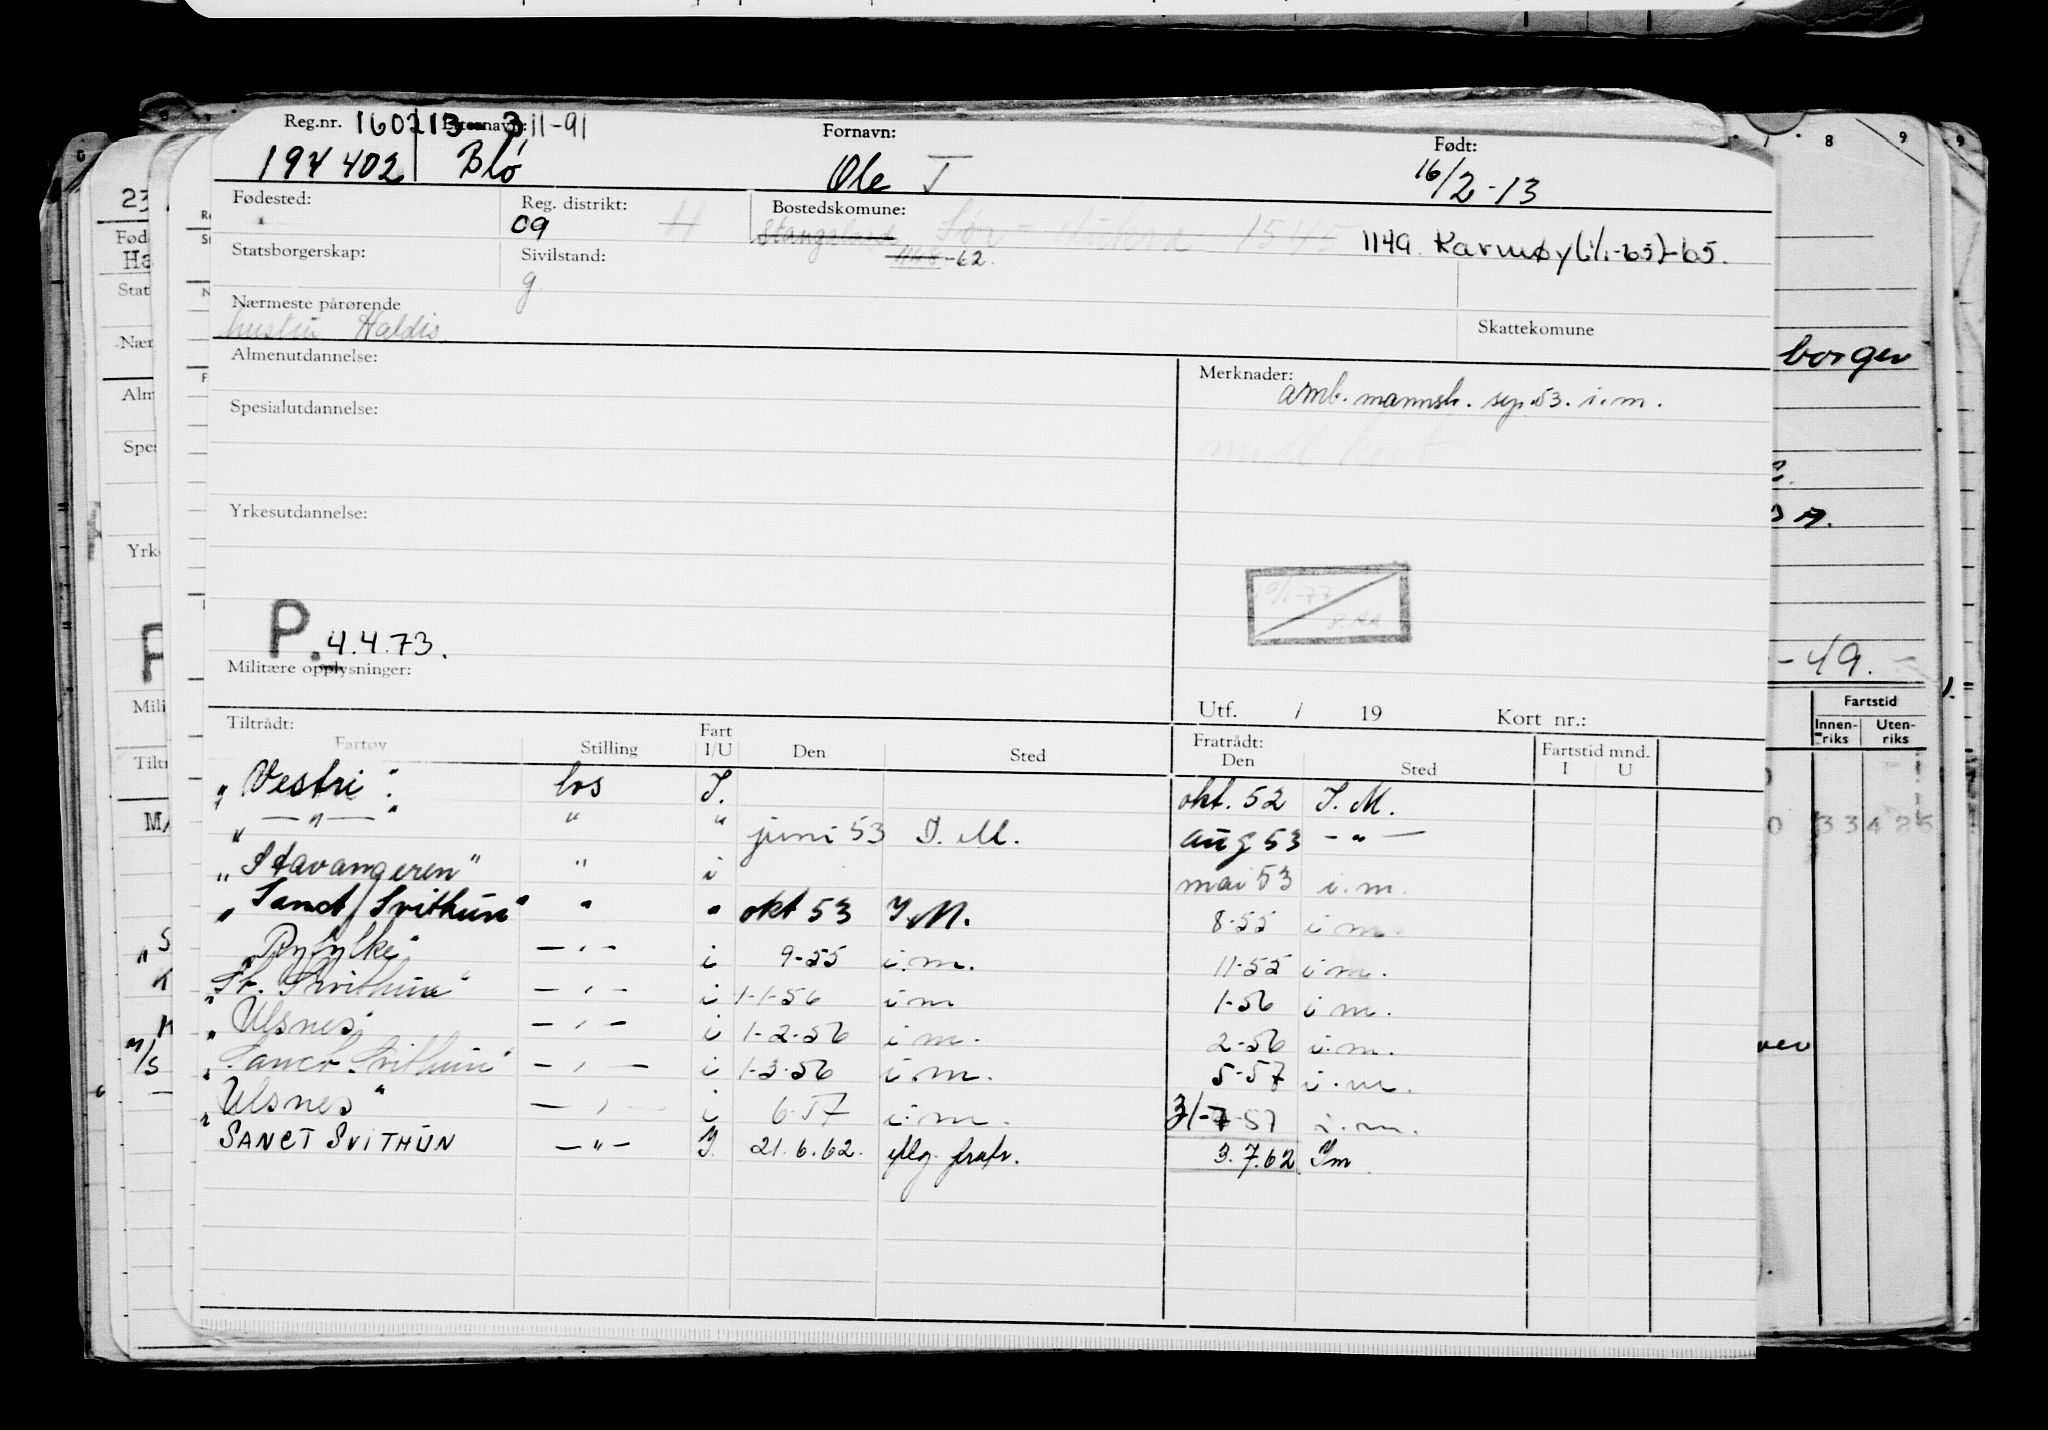 Reg.nr. 160213 Etternavn: 311-91 Fornavn: Født:
194 402 Blø Ole T 16/2-13
Fødested: Reg. distrikt: Bostedskomune:
09 H Stangaland Sør- Aukra 1545 1149. Karmøy (1/1-65)-65.
Statsborgerskap: Sivilstand: -62.
g.
Nærmeste pårørende Skattekomune
hustru Haldis
Almenutdannelse: Merknader:
amb. mannsk. sep. 53. i.m.
Spesialutdannelse:
Yrkesutdannelse:
P. 4.4.73.
Militære opplysninger:
Utf. / 19 Kort nr.:
Tiltrådt: Fart Fratrådt: Fartstid mnd.
Fartøy Stilling I/U Den Sted Den Sted I U
"Vestri". los I. okt. 52 I. M.
" — " — " " " juni 53 I. M. aug 53 - " -
"Stavangeren" " i mai 53 i.m.
"Sanct Svithun" " " okt 53 I.M. 8-55 i m.
"Ryfylke" - " - i 9-55 i.m. 11-55 i m.
"St. Svithun" - " - i 1-1-56 i m 1-56 i m.
"Ulsnes" - " - i 1-2-56 i m. 2-56 i.m.
"Sanct Svithun" - " - i 1-3-56 i.m. 5-57 i.m.
"Ulsnes" - " - i 6-57 i.m. 31-7-57 i.m.
SANCT SVITHUN - " - I 21.6.62. 3.7.62. Im
borger
-49.-
Fartstid
Innen-riks Uten-riks